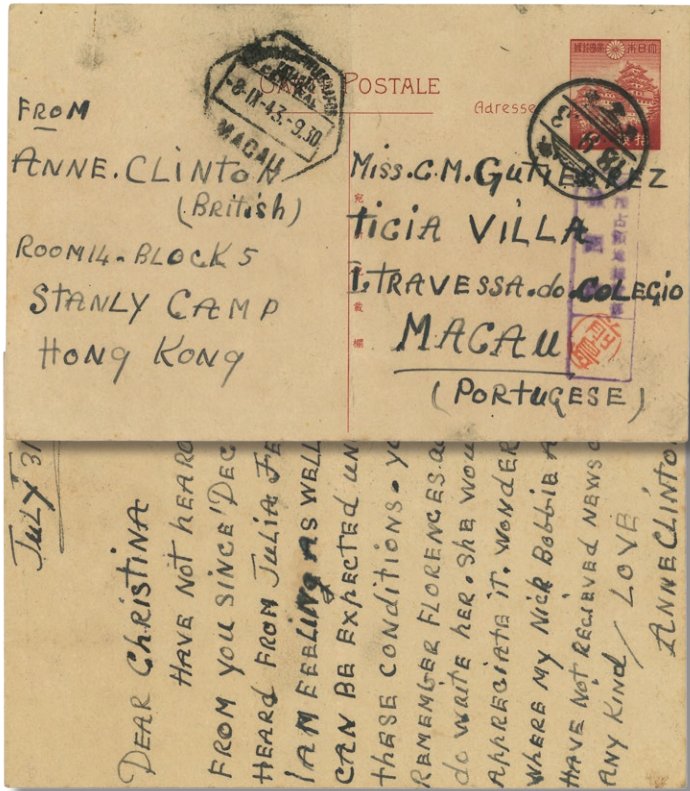 CENTRAL
-8.IX.43.-9.30.
MACAU
POSTALE
Adresse
FROM
ANNE.CLINTON
(British)
ROOM14.BLOCK5
STANLY CAMP
HONG KONG
Miss.C.M.GUTIERREZ
TICIA VILLA
1.TRAVESSA.do.COLEGIO
MACAU
(PORTUGESE)
JULY 31
DEAR CHRISTINA
HAVE NOT HEARD
FROM YOU SINCE DEC
HEARD FROM JULIA FE
I AM FEELING AS WELL
CAN BE EXPECTED UN
THESE CONDITIONS. YO
REMEMBER FLORENCES. a
do WRITE HER. SHE WOU
APPRECIATE IT. WONDER
WHERE MY NICK BOBBIE A
HAVE NOT RECIEVED NEWS O
ANY KIND / LOVE
ANNE CLINTO